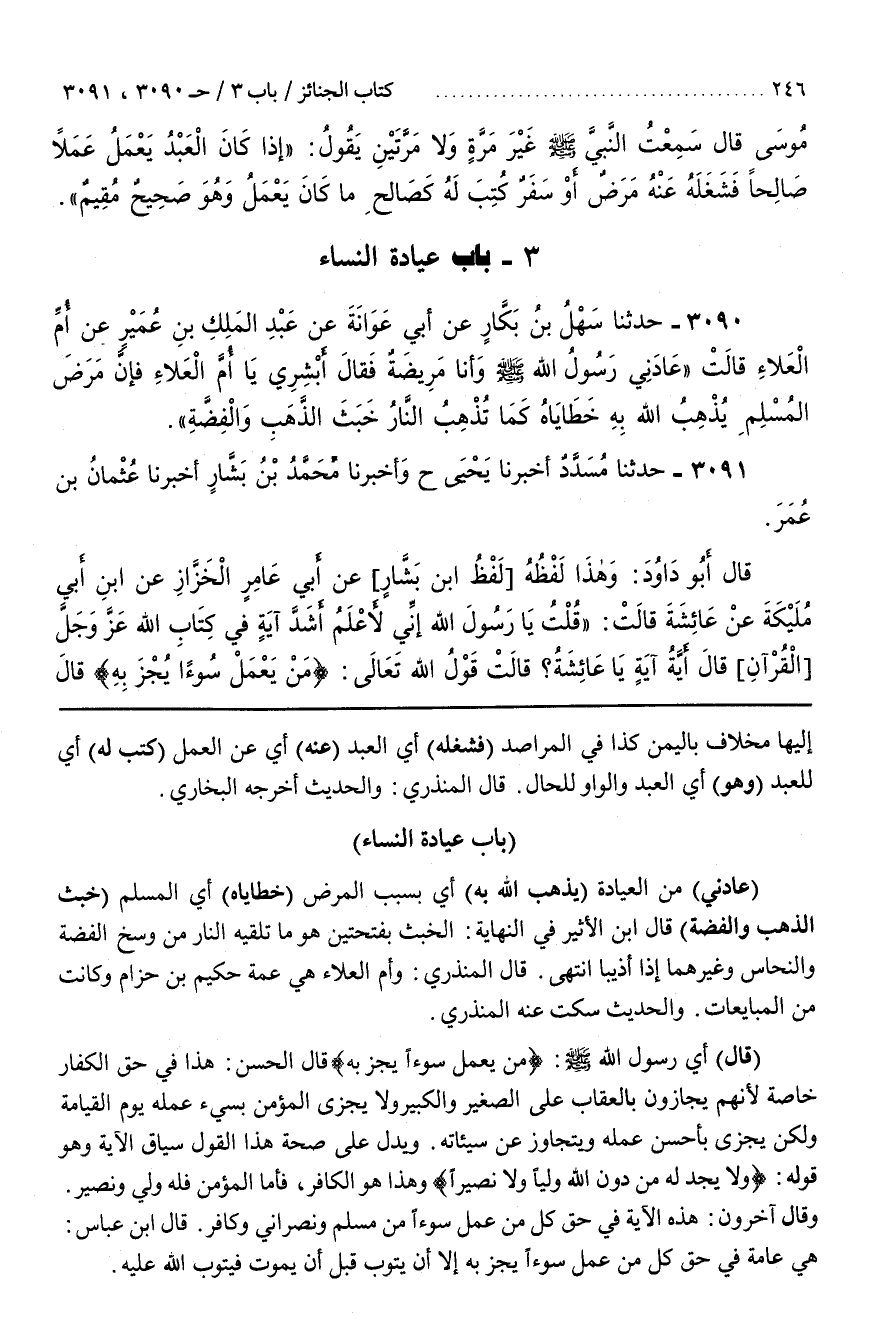 ٢٤٦ ........................................ كتاب الجنائز / باب ٣ / حـ ٣٠٩٠ ، ٣٠٩١
مُوسَى قال سَمِعْتُ النَّبيَّ ﷺ غَيْرَ مَرَّةٍ وَلا مَرَّتَيْنِ يَقُولُ: «إذا كَانَ الْعَبْدُ يَعْمَلُ عَمَلًا
صَالِحاً فَشَغَلَهُ عَنْهُ مَرَضٌ أَوْ سَفَرٌ كُتِبَ لَهُ كَصَالحِ ما كَانَ يَعْمَلُ وَهُوَ صَحِيحٌ مُقِيمٌ».
٣ ـ باب عيادة النساء
٣٠٩٠ ـ حدثنا سَهْلُ بنُ بَكَّارٍ عن أبي عَوَانَةَ عن عَبْدِ المَلِكِ بنِ عُمَيْرٍ عن أُمِّ
الْعَلاءِ قالَتْ «عَادَنِي رَسُولُ الله ﷺ وَأنا مَرِيضَةٌ فَقالَ أَبْشِرِي يَا أُمَّ الْعَلاءِ فإنَّ مَرَضَ
المُسْلِمِ يُذْهِبُ الله بِهِ خَطَايَاهُ كَمَا تُذْهِبُ النَّارُ خَبَثَ الذَّهَبِ وَالْفِضَّةِ».
٣٠٩١ ـ حدثنا مُسَدَّدٌ أخبرنا يَحْيَى ح وَأخبرنا مُحَمَّدُ بْنُ بَشَّارٍ أخبرنا عُثْمانُ بن
عُمَرَ.
قال أَبُو دَاوُدَ: وَهٰذَا لَفْظُهُ [لَفْظُ ابن بَشَّارٍ] عن أَبي عَامِرٍ الْخَزَّازِ عن ابنِ أَبي
مُلَيْكَةَ عنْ عَائِشَةَ قالَتْ: «قُلْتُ يَا رَسُولَ الله إنِّي لأَعْلَمُ أَشَدَّ آيَةٍ في كِتَابِ الله عَزَّ وَجَلَّ
[الْقُرْآنِ] قالَ أَيَّةُ آيَةٍ يَا عَائِشَةُ؟ قالَتْ قَوْلُ الله تَعَالَى: ﴿مَنْ يَعْمَلْ سُوءًا يُجْزَ بِهِ﴾ قالَ
إليها مخلاف باليمن كذا في المراصد (فشغله) أي العبد (عنه) أي عن العمل (كتب له) أي
للعبد (وهو) أي العبد والواو للحال. قال المنذري: والحديث أخرجه البخاري.
(باب عيادة النساء)
(عادني) من العيادة (يذهب الله به) أي بسبب المرض (خطاياه) أي المسلم (خبث
الذهب والفضة) قال ابن الأثير في النهاية: الخبث بفتحتين هو ما تلقيه النار من وسخ الفضة
والنحاس وغيرهما إذا أذيبا انتهى. قال المنذري: وأم العلاء هي عمة حكيم بن حزام وكانت
من المبايعات. والحديث سكت عنه المنذري.
(قال) أي رسول الله ﷺ: ﴿من يعمل سوءاً يجز به﴾ قال الحسن: هذا في حق الكفار
خاصة لأنهم يجازون بالعقاب على الصغير والكبير ولا يجزى المؤمن بسيء عمله يوم القيامة
ولكن يجزى بأحسن عمله ويتجاوز عن سيئاته. ويدل على صحة هذا القول سياق الآية وهو
قوله: ﴿ولا يجد له من دون الله ولياً ولا نصيراً﴾ وهذا هو الكافر، فأما المؤمن فله ولي ونصير.
وقال آخرون: هذه الآية في حق كل من عمل سوءاً من مسلم ونصراني وكافر. قال ابن عباس:
هي عامة في حق كل من عمل سوءاً يجز به إلا أن يتوب قبل أن يموت فيتوب الله عليه.